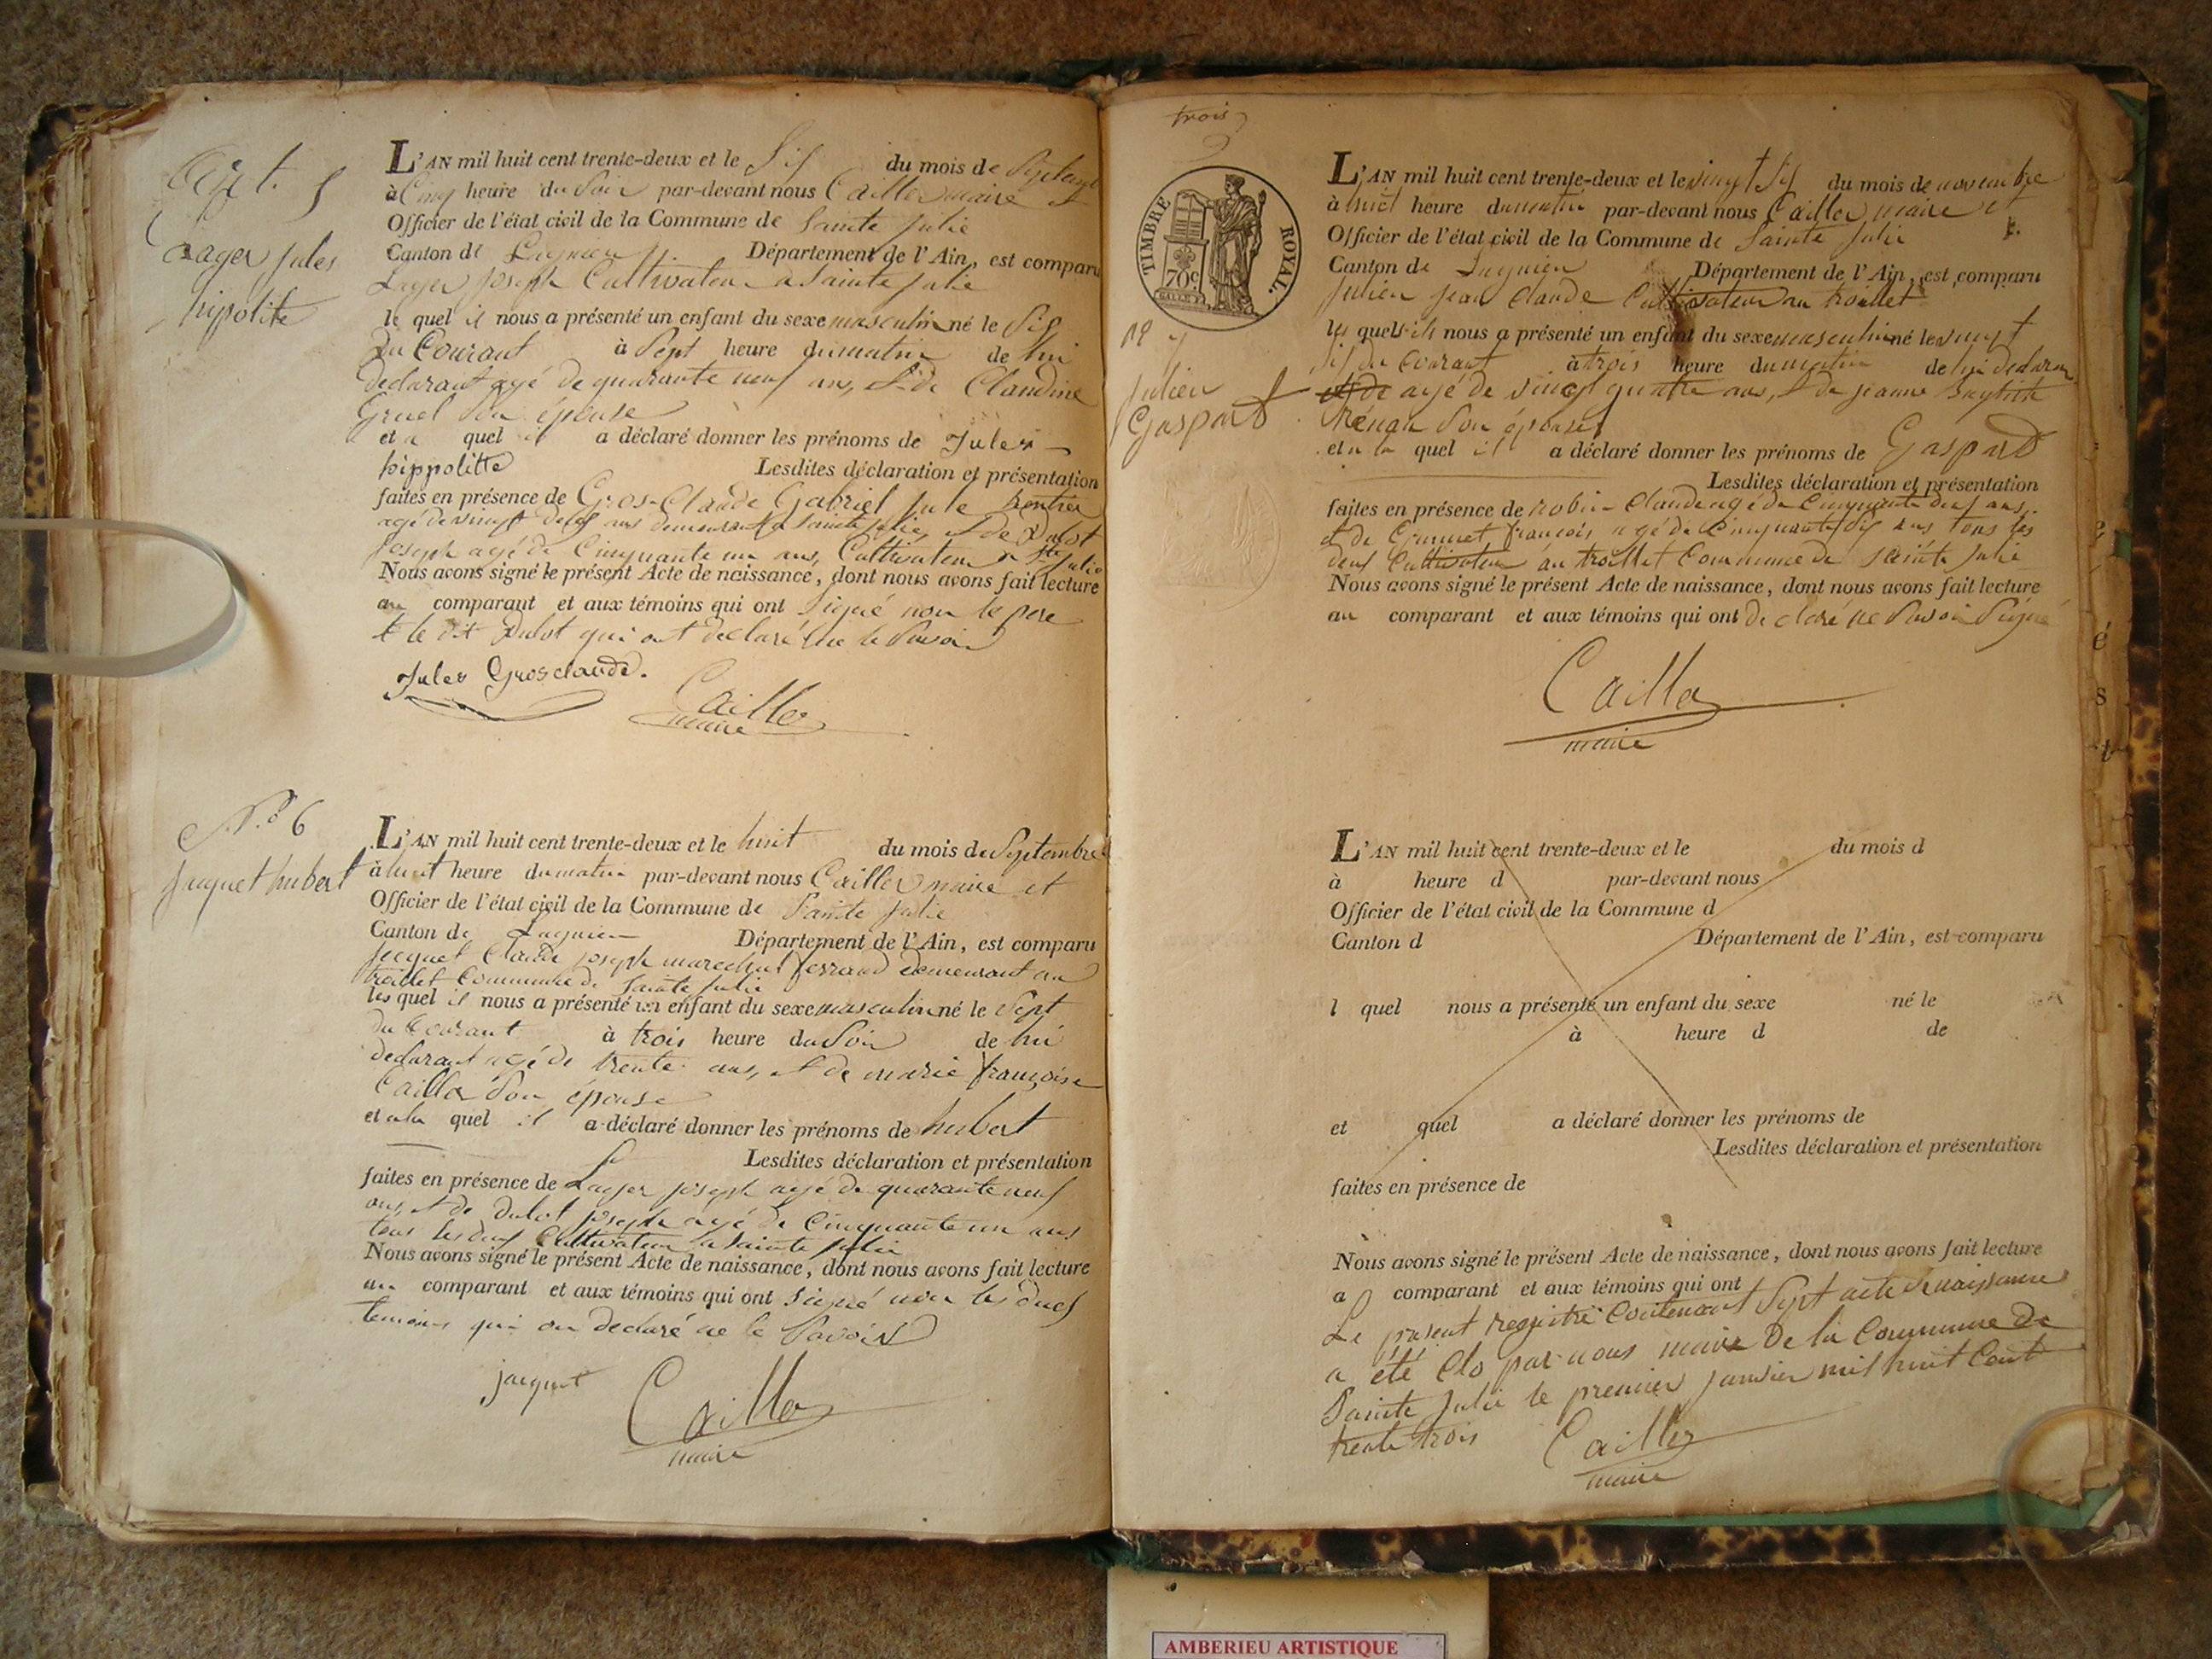 art. 5
Lager jules
hippolite
L'AN mil huit cent trente-deux et le Six du mois de Septembre
à Cinq heure du Soir par-devant nous Cailler maire et
Officier de l'état civil de la Commune de Sainte Julie
Canton de Lagnieu Département de l'Ain, est comparu
Lager joseph Cultivateur a Sainte julie
le quel il nous a présenté un enfant du sexe masculin né le Six
du Courant à Sept heure du matin de lui
declarant agé de quarante neuf ans, & de Claudine
Gruel Son épouse
et a quel il a déclaré donner les prénoms de Jules
hippolitte Lesdites déclaration et présentation
faites en présence de Gros-Claude Gabriel Jule Rentier
agé de vingt deux ans demeurant a Sainte julie, & de Dulot
joseph agé de Cinquante un ans, Cultivateur a Ste julie
Nous avons signé le présent Acte de naissance, dont nous avons fait lecture
au comparant et aux témoins qui ont Signé non le pere
& le dit Dulot qui ont declaré ne le Savoir
Jules Grosclaude.
Cailler
maire
N.o 6
jacquet hubert
L'AN mil huit cent trente-deux et le huit du mois de Septembre
à huit heure du matin par-devant nous Cailler maire et
Officier de l'état civil de la Commune de Sainte Julie
Canton de Lagnieu Département de l'Ain, est comparu
jacquet Claude joseph marechal ferrand demeurant au
trollet Commune de Sainte julie
les quel il nous a présenté un enfant du sexe masculin né le Sept
du Courant à trois heure du Soir de lui
declarant agé de trente ans, & de marie françoise
Cailler Son épouse
et a la quel il a déclaré donner les prénoms de hubert
Lesdites déclaration et présentation
faites en présence de Lager joseph agé de quarante neuf
ans, & de Dulot joseph agé de Cinquante un ans
tous les deux Cultivateur a Sainte julie
Nous avons signé le présent Acte de naissance, dont nous avons fait lecture
au comparant et aux témoins qui ont signé non les deux
temoins qui on declaré ne le Savoir
jacquet
Cailler
maire
trois
TIMBRE ROYAL.
70c
7
julien
Gaspard
L'AN mil huit cent trente-deux et le vingt Six du mois de novembre
à huit heure du matin par-devant nous Cailler maire et
Officier de l'état civil de la Commune de Sainte Julie
Canton de Lagnieu Département de l'Ain, est comparu
julien jean Claude Cultivateur au trollet
les quels ils nous a présenté un enfant du sexe masculin né le vingt
six du Courant à trois heure du matin de lui declarant
et de agé de vingt quatre ans, & de jeanne Baptiste
son épouse
et a la quel il a déclaré donner les prénoms de Gaspard
Lesdites déclaration et présentation
faites en présence de robin Claude agé de Cinquante deux ans.
& de françois agé de Cinquante six ans tous les
deux Cultivateur au trollet Commune de Sainte Julie
Nous avons signé le présent Acte de naissance, dont nous avons fait lecture
au comparant et aux témoins qui ont declaré ne Savoir Signé
Cailler
maire
L'AN mil huit cent trente-deux et le du mois d
à heure d par-devant nous
Officier de l'état civil de la Commune d
Canton d Département de l'Ain, est comparu
l quel nous a présenté un enfant du sexe né le
à heure d de
et quel a déclaré donner les prénoms de
Lesdites déclaration et présentation
faites en présence de
Nous avons signé le présent Acte de naissance, dont nous avons fait lecture
a comparant et aux témoins qui ont
Le present registre Contenant Sept acte de naissance
a été Clo par nous maire De la Commune de
Sainte Julie le premier janvier mil huit Cent
trente trois
Cailler
maire
AMBERIEU ARTISTIQUE